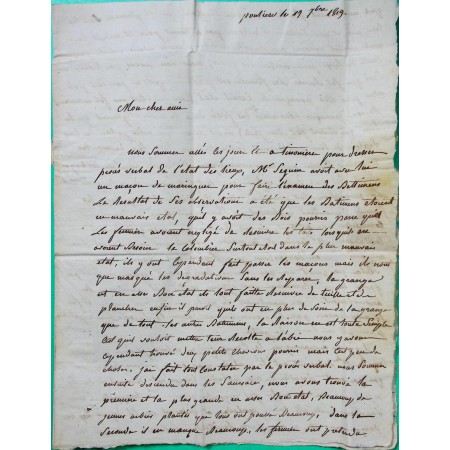 le 19 7bre 1819
Mon cher ami
nous sommes allés ces jours à pour dresser
procès verbal de l'état des lieux, Mr Seguin avoit avec lui
un maçon de maringues pour faire l'examen des Battimens
Le Resultat de ses observations a été que les Batimens étoient
en mauvais etat, qu'il y avoit des Bois pourris parce que
les fermiers avoient negligé de les lorsqu'ils en
avoient Besoin le Colombier Surtout est dans le plus mauvais
etat, ils y ont cependant fait passer les maçons mais ils n'ont
que masqué les dégradations sans les réparer, la grange
est en assé Bon état ils l'ont faitte de tuille et de
plancher enfin il paroit qu'ils ont eu plus de soin de la grange
que de tout les autres Batimens, la Raison en est toute Simple
c'est qu'ils vouloit mettre leur Recolte à l'abri nous y avons
cependant trouvé des petits chevrons pourris mais très peu de
chose. j'ai fait tout constater par le procès verbal. nous sommes
ensuite descendu dans les Saussaie, nous avons trouvé la
première et la plus grande en assé Bon état, Beaucoup de
jeunes arbres plantés qui tous ont poussé Beaucoup, dans la
seconde il en manque Beaucoup, les fermiers ont pretendu